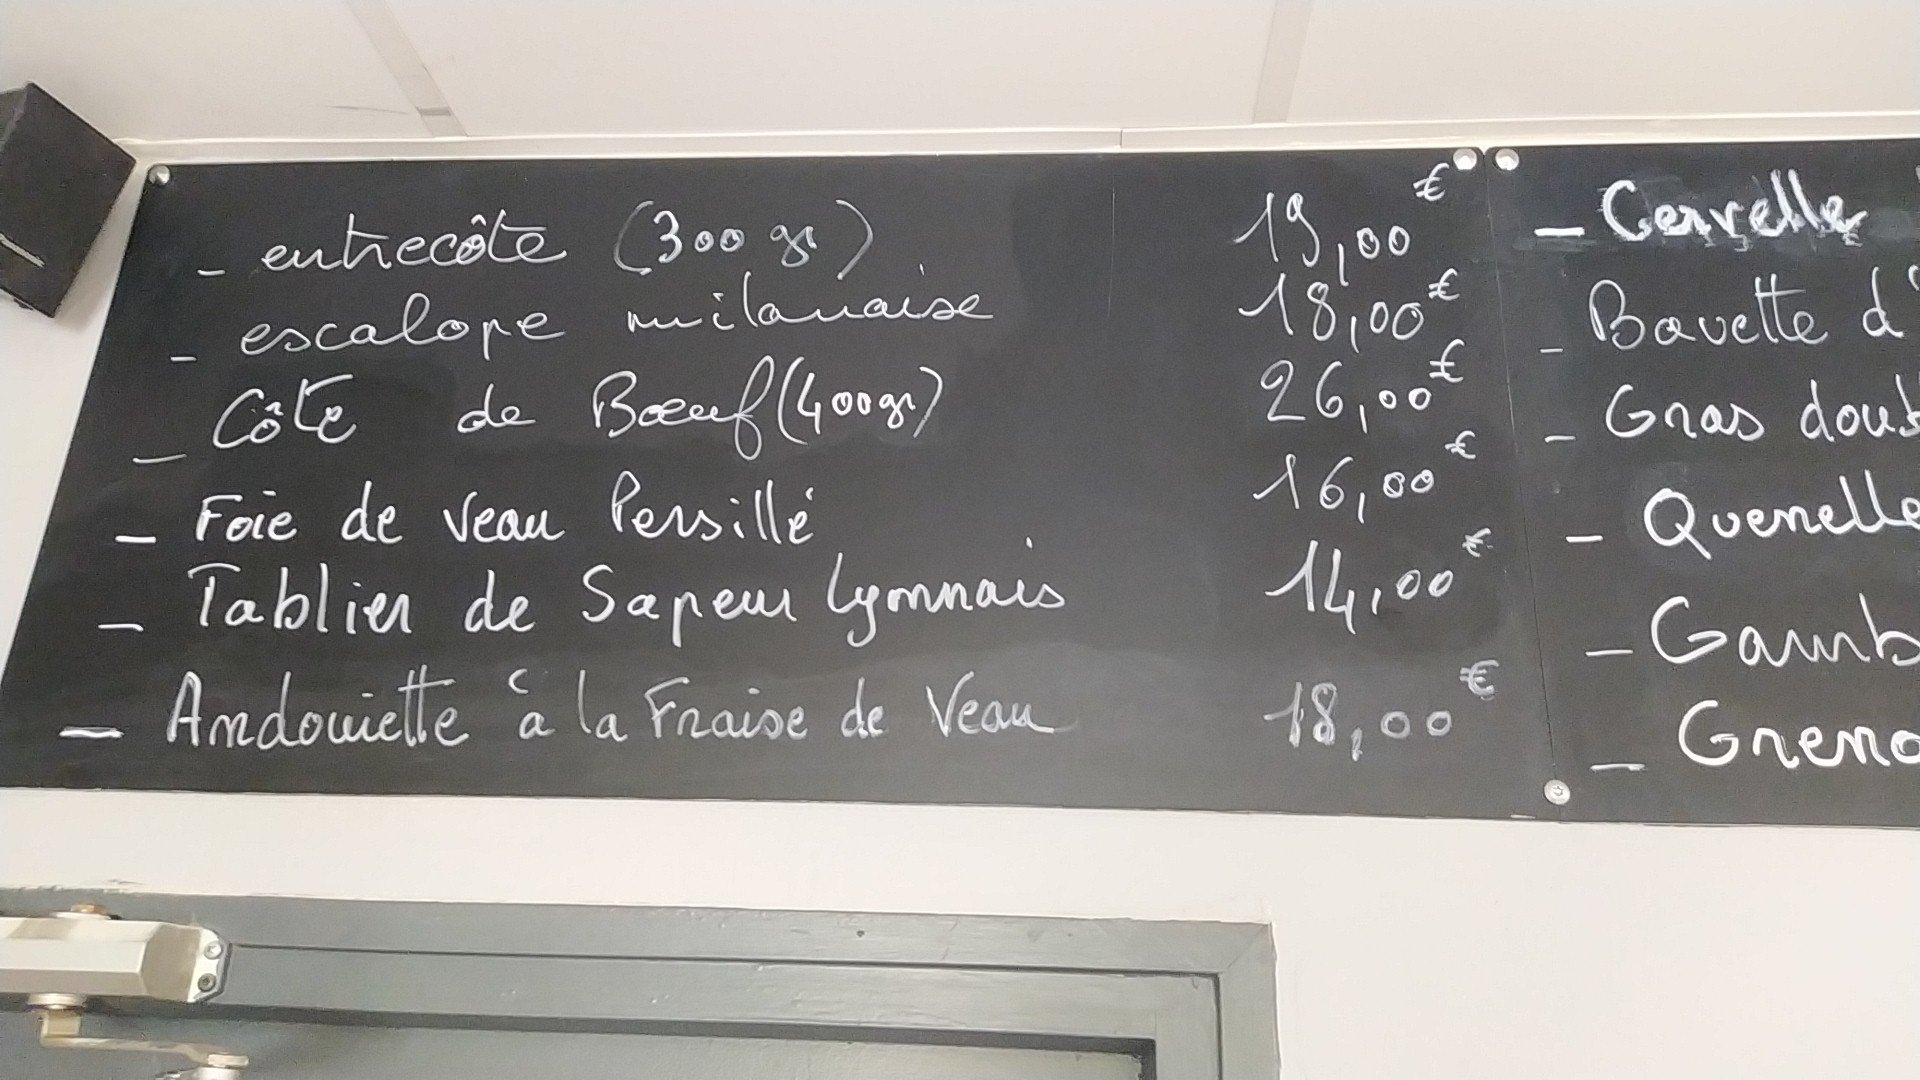 - entrecôte (300 gr) 19,00 €
- escalope milanaise 18,00 €
- Côte de Bœuf (400gr) 26,00 €
- Foie de veau Persillé 16,00 €
- Tablier de Sapeur lyonnais 14,00 €
- Andouiette à la Fraise de Veau 18,00 €
- Cervelle
- Bavette d'
- Gras doub
- Quenelle
- Gamb
- Greno